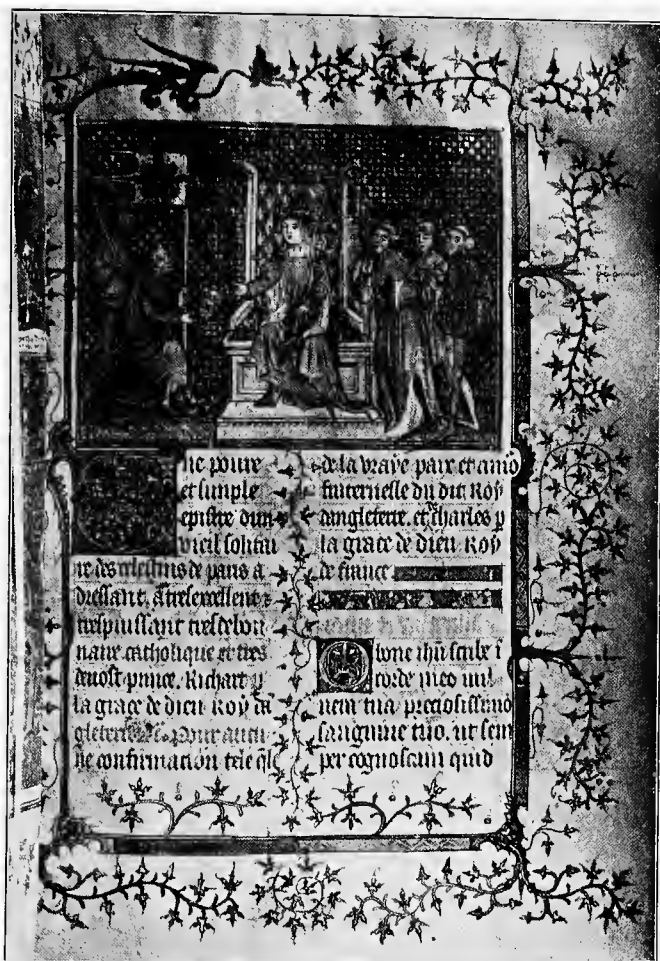 ne poure
et simple
epistre dun
vieil solitai
re des celestins de paris a
dressant, a tresexcellent ⁊
trespuissant tresdebon
naire catholique et tres
deuost prince, Richart p
la grace de dieu Roy dã
gleterre Pour aucu
ne confirmacion tele qle
de la vraye paix et amo
fraternelle du dit Roy
dangleterre. et charles p
la grace de dieu Roy
de france
bone ihũ scribe ĩ
corde meo uul
nera tua preciosissimo
sanguine tuo, ut sem
per cognoscam quid